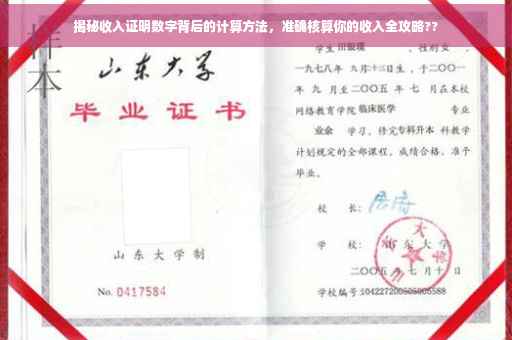 揭秘收入证明数字背后的计算方法，准确核算你的收入全攻略??
样本
山东大学
毕业证书
山东大学制
No. 0417584
学生 田淑瑛 ，性别女，
一九七八年 九月十三日生，于二〇〇一
年 九 月至二〇〇五 年 七 月在本校
网络教育学院 临床医学 专业
业余 学习，修完专科升本 科教学
计划规定的全部课程，成绩合格，准予
毕业。
校 长：
学 校：山东大学
二〇〇五 年 七 月 十 日
学校编号:104227200505005588